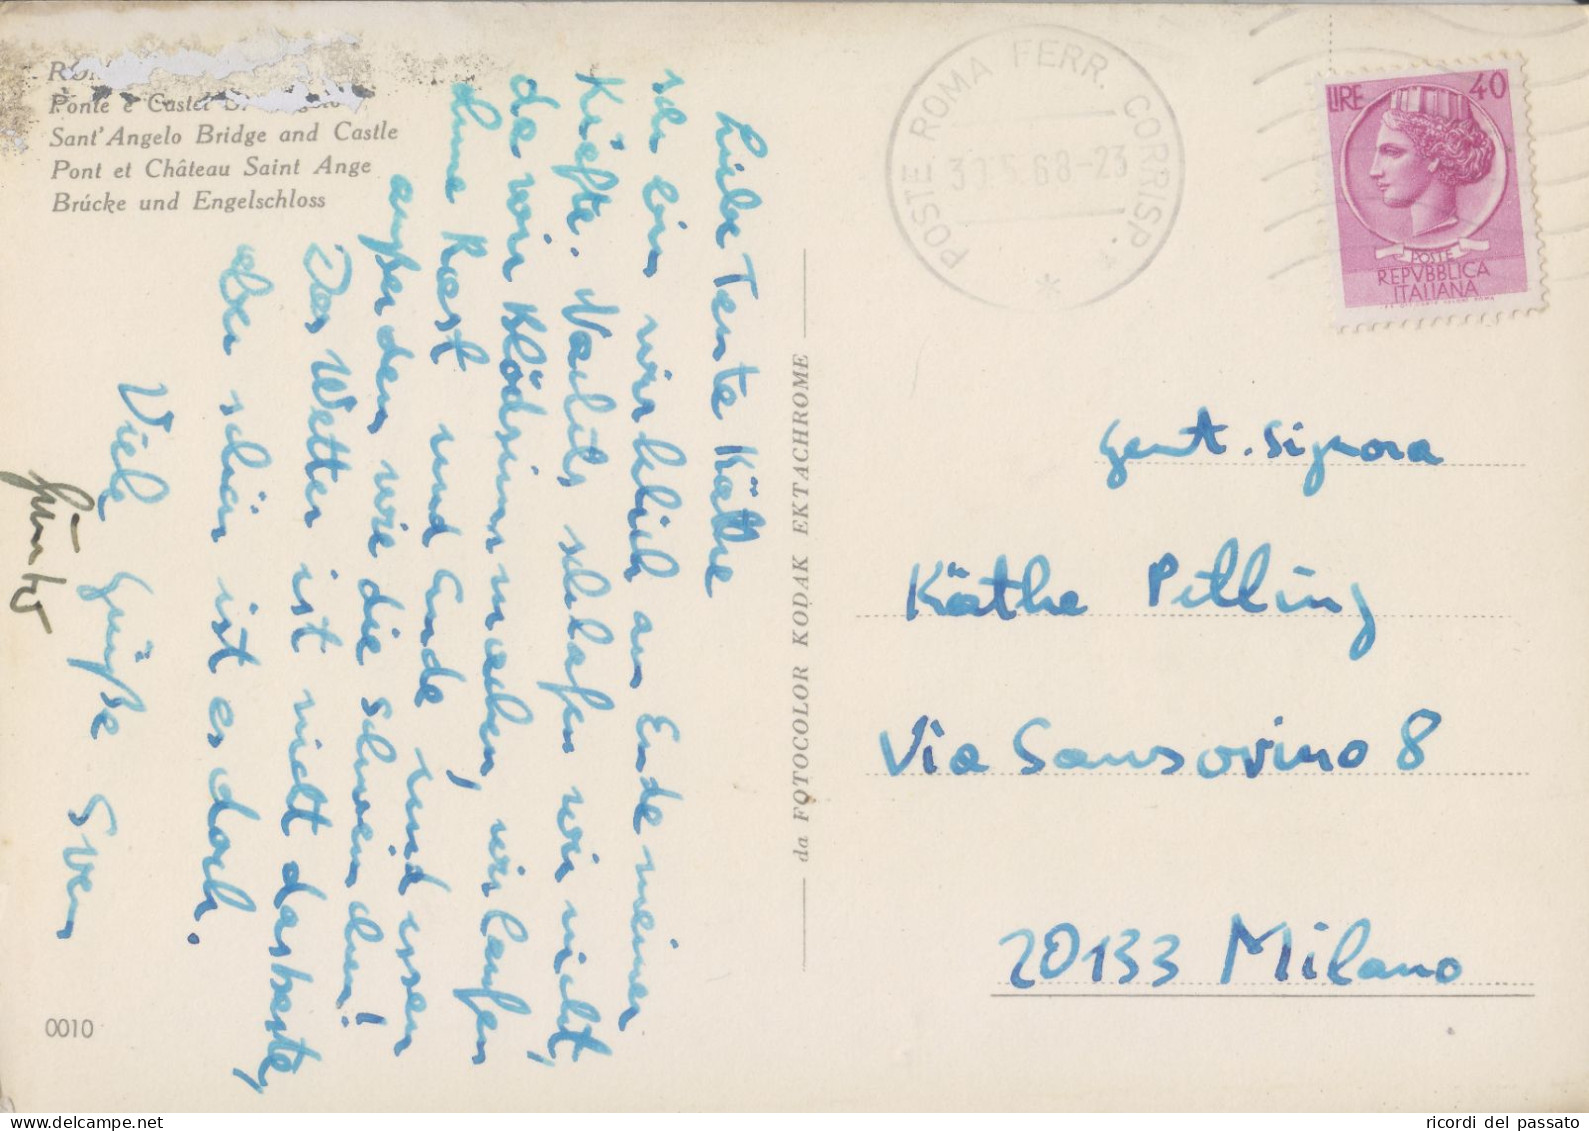 Ponte e Castel
Sant'Angelo Bridge and Castle
Pont et Château Saint Ange
Brúcke und Engelschloss
Liebe Tante Käthe
ich bin wirklich am Ende meiner
Kräfte. Nachts schlafen wir nicht,
da wir Blödsinn machen, wir laufen
ohne Rast und Ende und essen
außerdem wie die Schweinchen!
Das Wetter ist nicht das beste,
aber schön ist es doch.
Viele Grüße Sven
Günter
0010
da FOTOCOLOR KODAK EKTACHROME
POSTE ROMA FERR. CORRISP. *
30.5.68-23
LIRE 40
POSTE
REPVBBLICA
ITALIANA
Gent. Signora
Käthe Pilling
Via Sansovino 8
20133 Milano
ricordi del passato